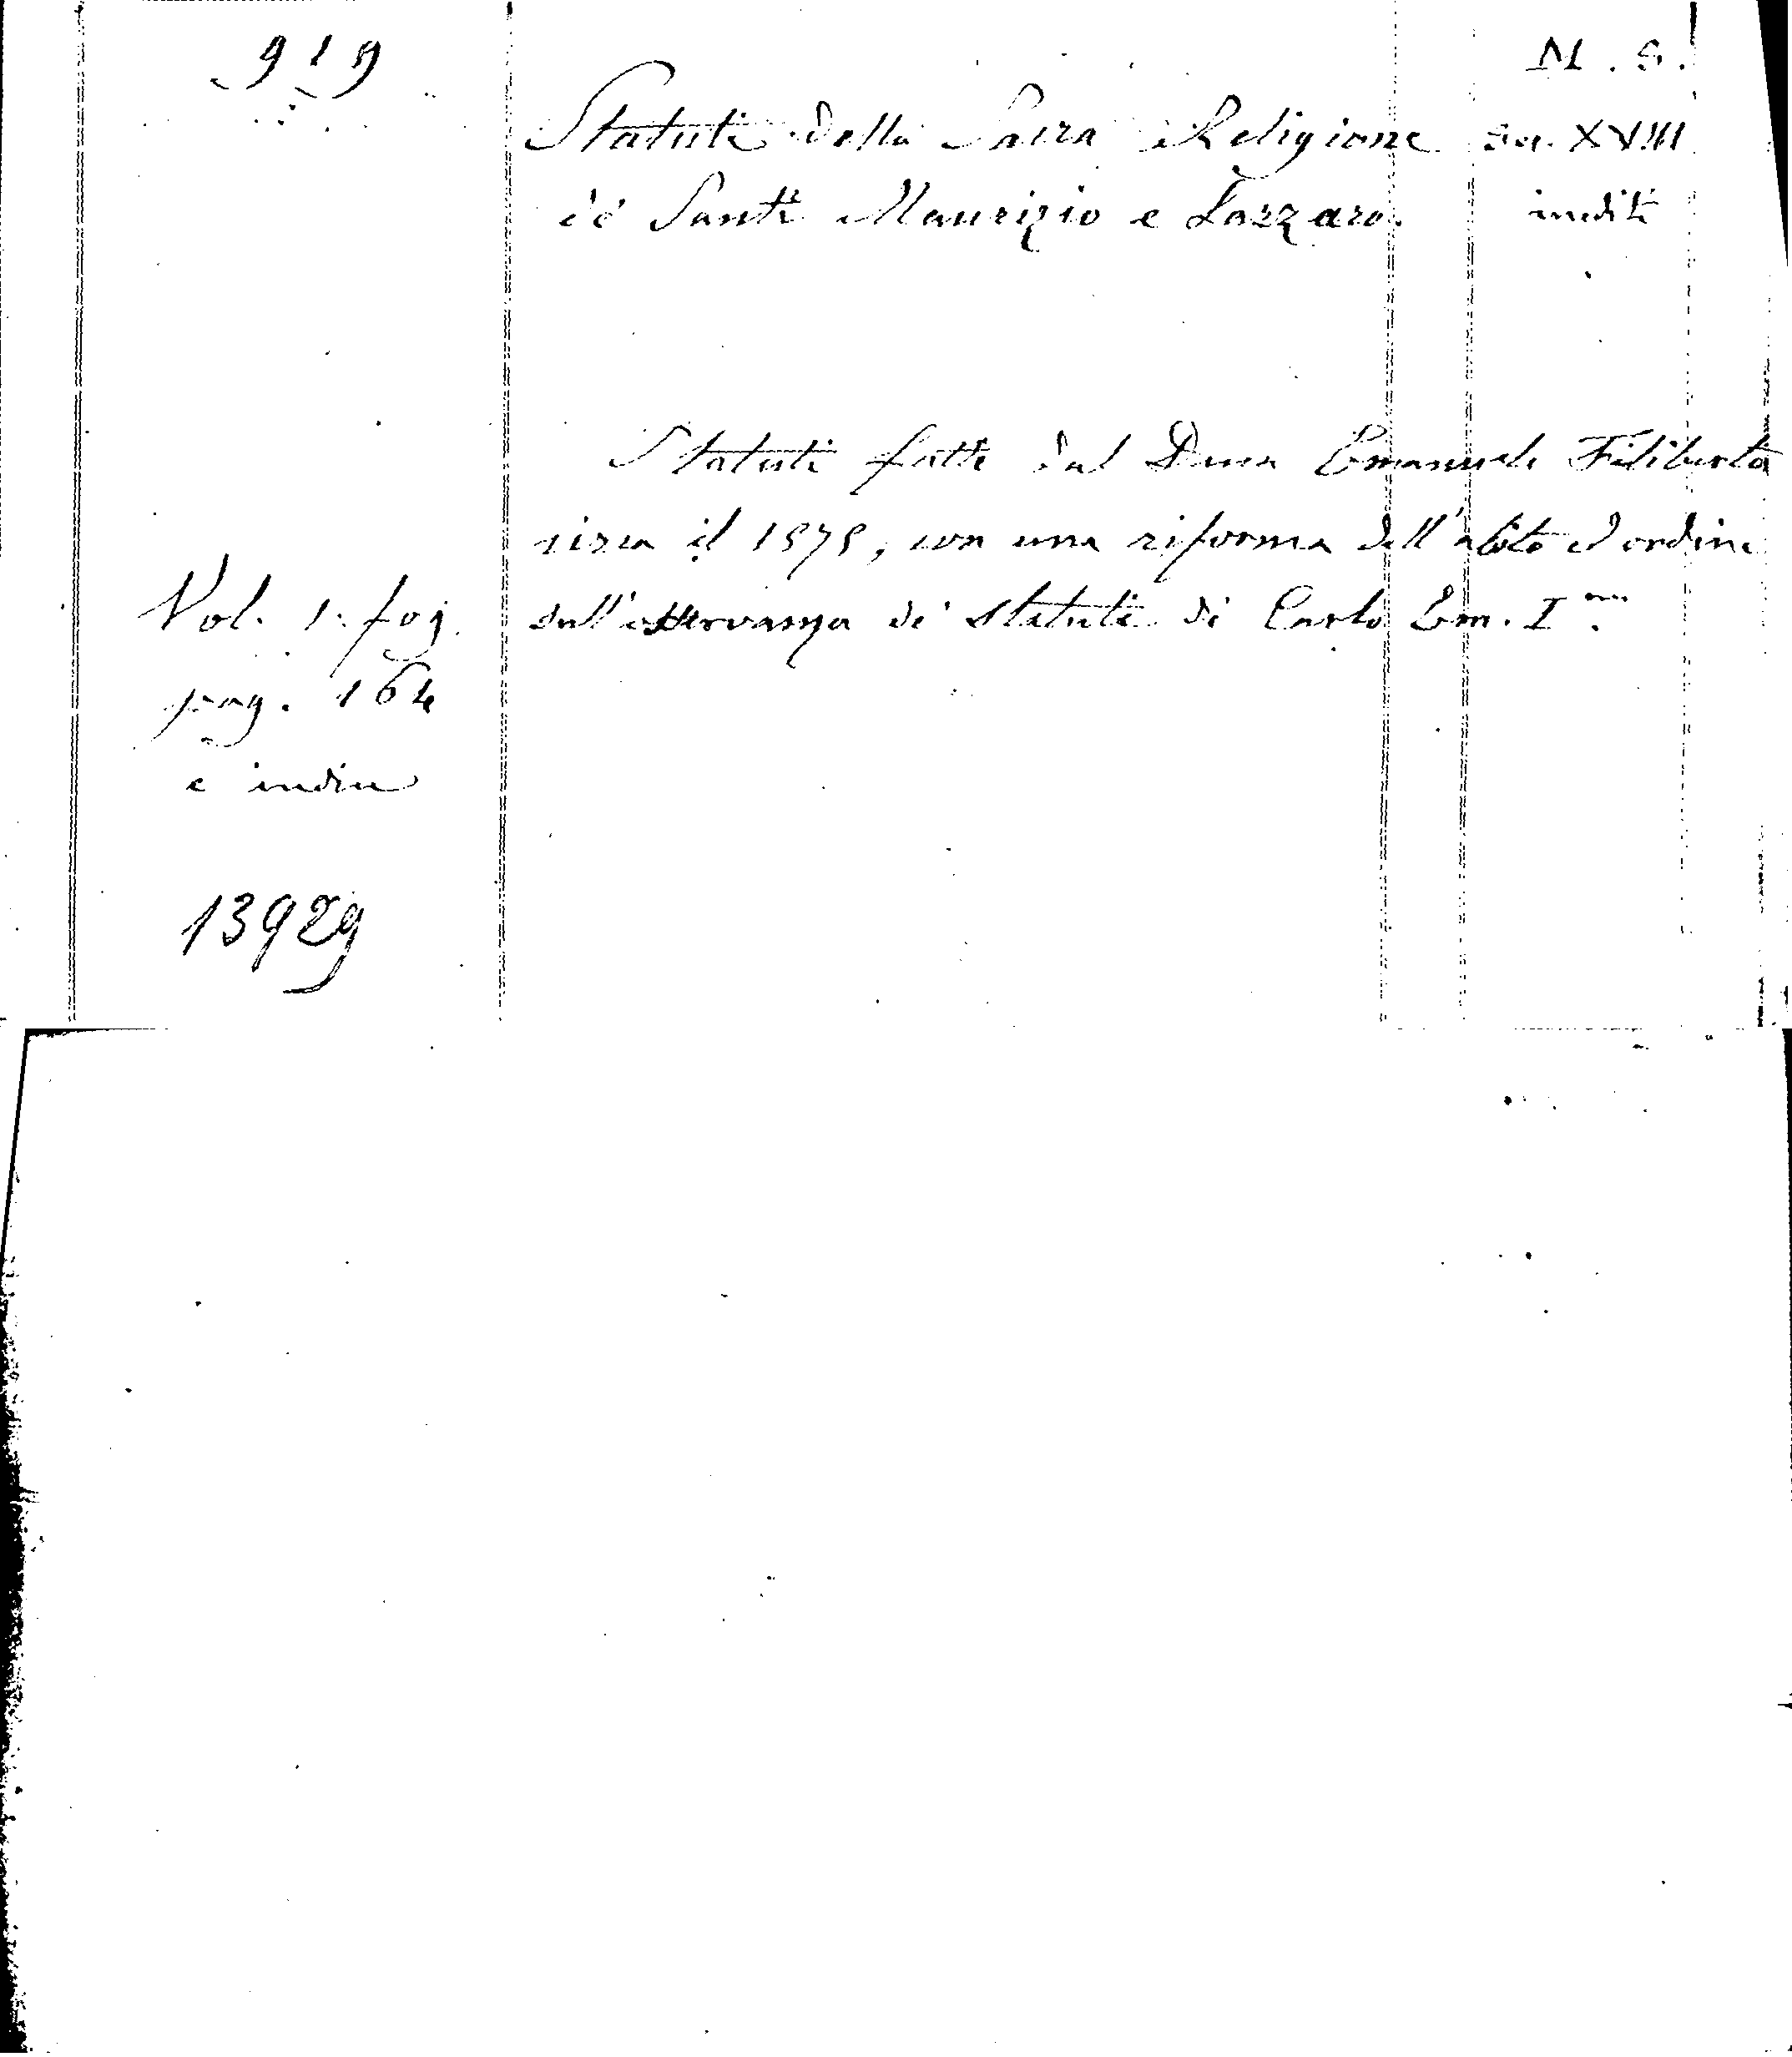 919
M. S.
Statuti della Sacra Religione
Sec. XVIII
de' Santi Maurizio e Lazzaro.
inediti
Statuti fatti dal Duca Emanuele Filiberto
circa il 1575, con una riforma dell'abito ed ordine
sull'osservanza de' statuti di Carlo Em. I.mo
Vol. 1. fog.
pag. 164
e indice
13929